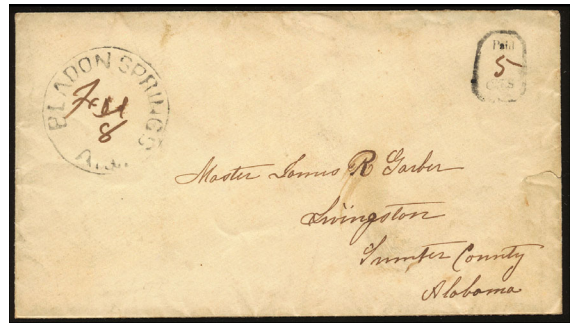 BLADON SPRINGS
ALA.
Feb
8
Paid
5
Cents
Master James R Garber
Livingston
Sumter County
Alabama